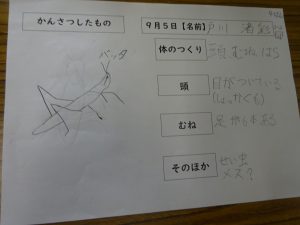 かんさつしたもの
9月5日【名前】戸川
バッタ
体のつくり
頭 むね はら
頭
目がついている
(しょっかくも)
むね
足が6本ある
そのほか
せい虫
メス?